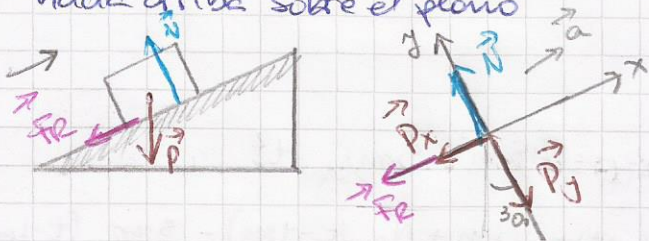 hacia arriba sobre el plano
N
FR
P
y
N
a
x
Px
Py
FR
30°